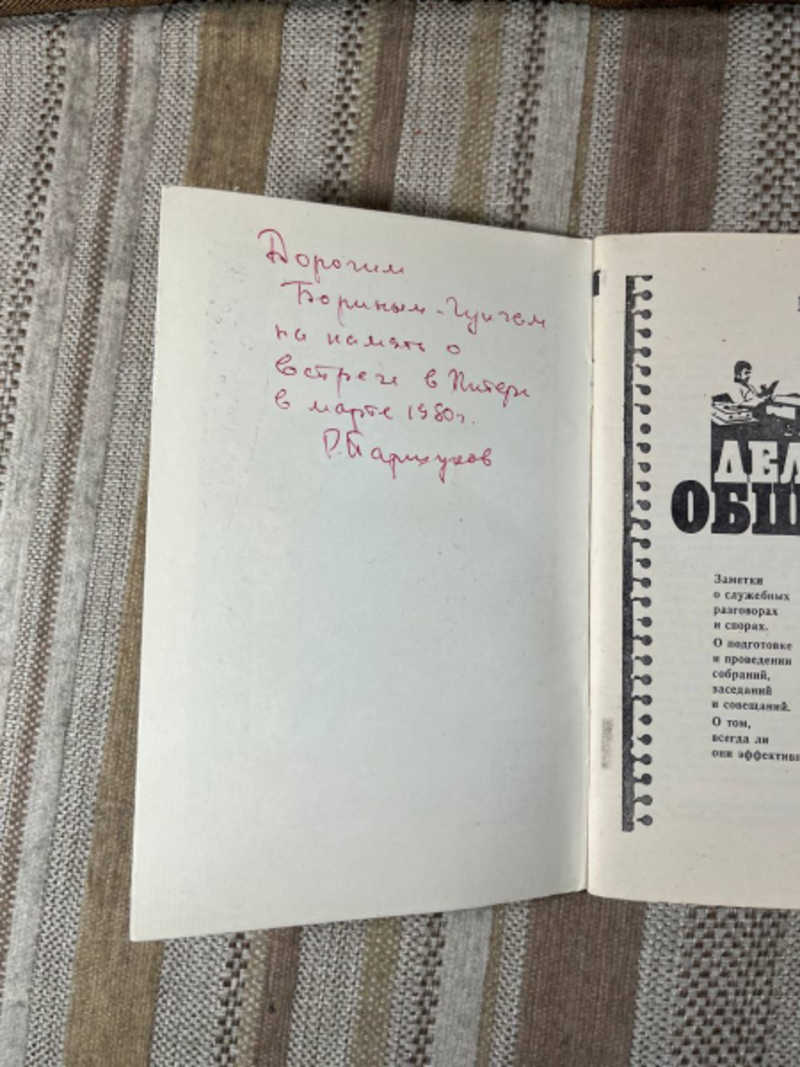 Дорогим
Бориным-Гуичем
на память о
встрече в Питере
в марте 1980г.
ДЕЛ
ОБЩ
Заметки
о служебных
разговорах
и спорах.
О подготовке
и проведении
собраний,
заседаний
и совещаний.
О том,
всегда ли
они эффективн